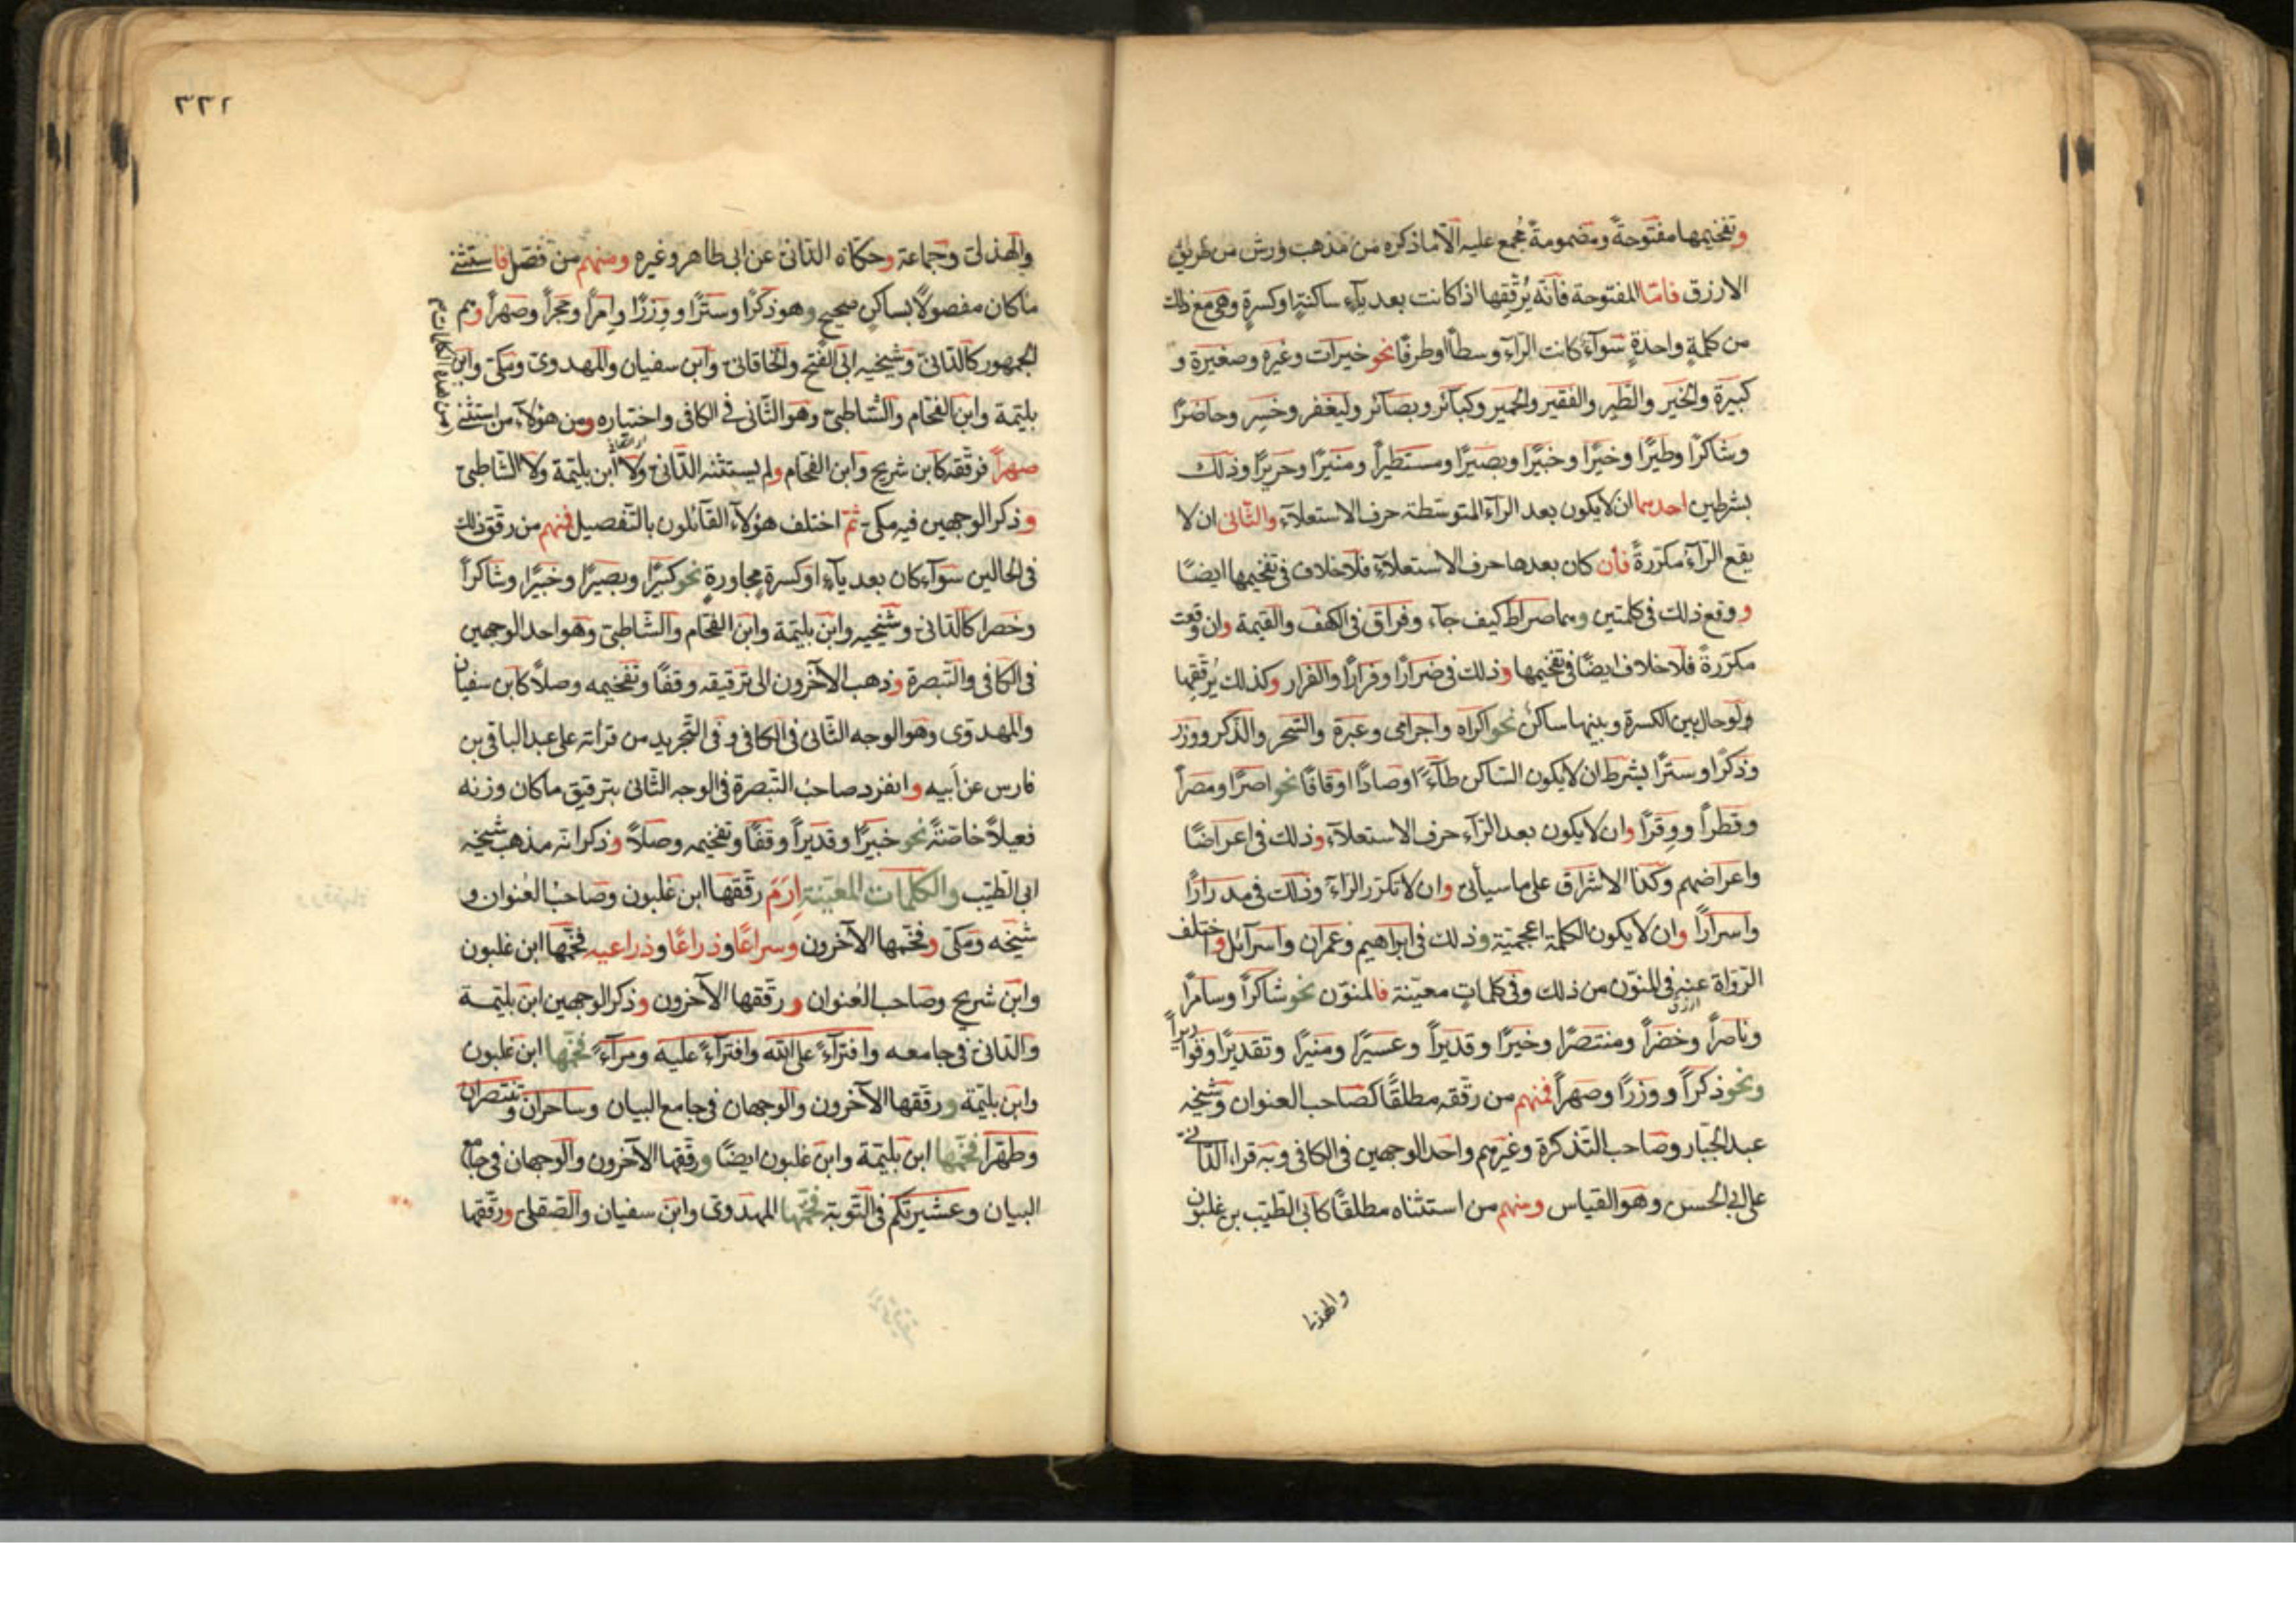 وتفخيمها مفتوحةً ومضمومةً مُجمع عليه الّا ما ذكره من مذهب ورش من طريق
الازرق فامّا المفتوحة فانّه يُرقّقها اذا كانت بعد يآءٍ ساكنةٍ او كسرةٍ وهى مع ذلك
من كلمةٍ واحدةٍ سوآء كانت الرّآء وسطاً او طرفًا نحو خيرات وغيره وصغيرة و
كبيرة والخير والطّير والفقير والحمير وكبآئر وبصآئر وليغفر وخسِر وحاضرًا
وشاكرًا وطيرًا وخيرًا وخبيرًا وبصيرًا ومستطيراً ومنيرًا وحريرًا وذلك
بشرطين احدهما ان لا يكون بعد الرّآء المتوسّطة حرف الاستعلآء والثّانى ان لا
يقع الرّآء مكرّرةً فان كان بعدها حرف الاستعلآء فلا خلاف فى تفخيمها ايضًا
و وقع ذلك فى كلمتين وهما صراط كيف جآء وفراق فى الكهف والقيمة وان وقعت
مكرّرةً فلا خلاف ايضًا فى تفخيمها وذلك فى ضرارًا وفرارًا والفرار وكذلك يُرقّقها
ولو حال بين الكسرة وبينها ساكن نحو اكراه واجرامى وعبرة والسّحر والذّكر ووزر
وذكرًا وسترًا بشرط ان لا يكون السّاكن طآءً او صادًا او قافًا نحو اصرًا ومصراً
وقطراً ووِقرًا وان لا يكون بعد الرّآء حرف الاستعلآء وذلك فى اعراضًا
واعراضهم وكذا الاشراق على ما سيأتى وان لا تكرّر الرّآء وذلك فى مدرارًا
واسرارًا وان لا يكون الكلمة اعجميّة وذلك فى ابراهيم وعمران واسرآئل واختلف
الرّواة عنه فى المنوّن من ذلك وفى كلماتٍ معيّنة فالمنوّن نحو شاكراً وسامرًا
وناصراً وخضراً ومنتصرًا وخيرًا وقديراً وعسيرًا ومنيرًا وتقديرًا وقواريراً
ونحو ذكراً ووزرًا وصهراً فمنهم من رقّقه مطلقًا كصاحب العنوان وشيخه
عبد الجبّار وصاحب التّذكرة وغيرهم واحد الوجهين فى الكافى وبه قراء الدّانىّ
على ابى الحسن وهو القياس ومنهم من استثناه مطلقًا كابى الطّيّب بن غلبون
والهذلى
٢٢١
والهذلىّ وجماعة وحكاه الدّانى عن ابى طاهر وغيره ومنهم من فصّل فاستثنى
ما كان مفصولًا بساكنٍ صحيح وهو ذكرًا وسترًا ووزرًا وامرًا وحجراً وصهراً وهم
الجمهور كالدّانىّ وشيخيه ابى الفتح والخاقانىّ وابن سفيان والمهدوىّ ومكّى وابن
بليّمة وابن الفحّام والشّاطبىّ وهو الثّانى فى الكافى واختياره ومن هؤلآء من استثنى
من هذه الكلمات
صهراً فرقّقه كابن شريح وابن الفحّام ولم يستثنه الدّانىّ ولا ابن بليّمة ولا الشّاطبىّ
وذكر الوجهين فيه مكىّ ثمّ اختلف هؤلآء القآئلون بالتّفصيل فمنهم من رقّق ذلك
فى الحالين سوآء كان بعد يآءٍ او كسرةٍ مجاورةٍ نحو كبيرًا وبصيرًا وخبيرًا وشاكراً
وخضرا كالدّانىّ وشيخيه وابن بليّمة وابن الفحّام والشّاطبىّ وهو احد الوجهين
فى الكافى والتّبصرة وذهب الآخرون الى ترقيقه وقفًا وتفخيمه وصلًا كابن سفيان
والمهدوى وهو الوجه الثّانى فى الكافى وفى التّجريد من قرأته على عبد الباقى بن
فارس عن أبيه وانفرد صاحب التّبصرة فى الوجه الثّانى بترقيق ما كان وزنه
فعيلًا خاصّةً نحو خبيرًا وقديراً وقفًا وتفخيمه وصلًا وذكر انّه مذهب شيخه
ابى الطّيّب والكلمات المعيّنة اِرَمَ رقّقها ابن غلبون وصاحب العُنوان و
شيخه ومكىّ وفخّمها الآخرون وسراعًا وذراعًا وذراعيه فخّمها ابن غلبون
وابن شريح وصاحب العُنوان ورقّقها الآخرون وذكر الوجهين ابن بليّمة
والدّانىّ فى جامعه وافترآءً على الله وافترآءً عليه ومرآءً فخّمها ابن غلبون
وابن بليّمة ورقّقها الآخرون والوجهان فى جامع البيان وساحران وتنتصران
وطهّرا فخّمها ابن بليّمة وابن غلبون ايضًا ورقّقها الآخرون والوجهان فى جامع
البيان وعشيرتكم فى التّوبة فخّمها المهدوىّ وابن سفيان والصّقلىّ ورقّقها